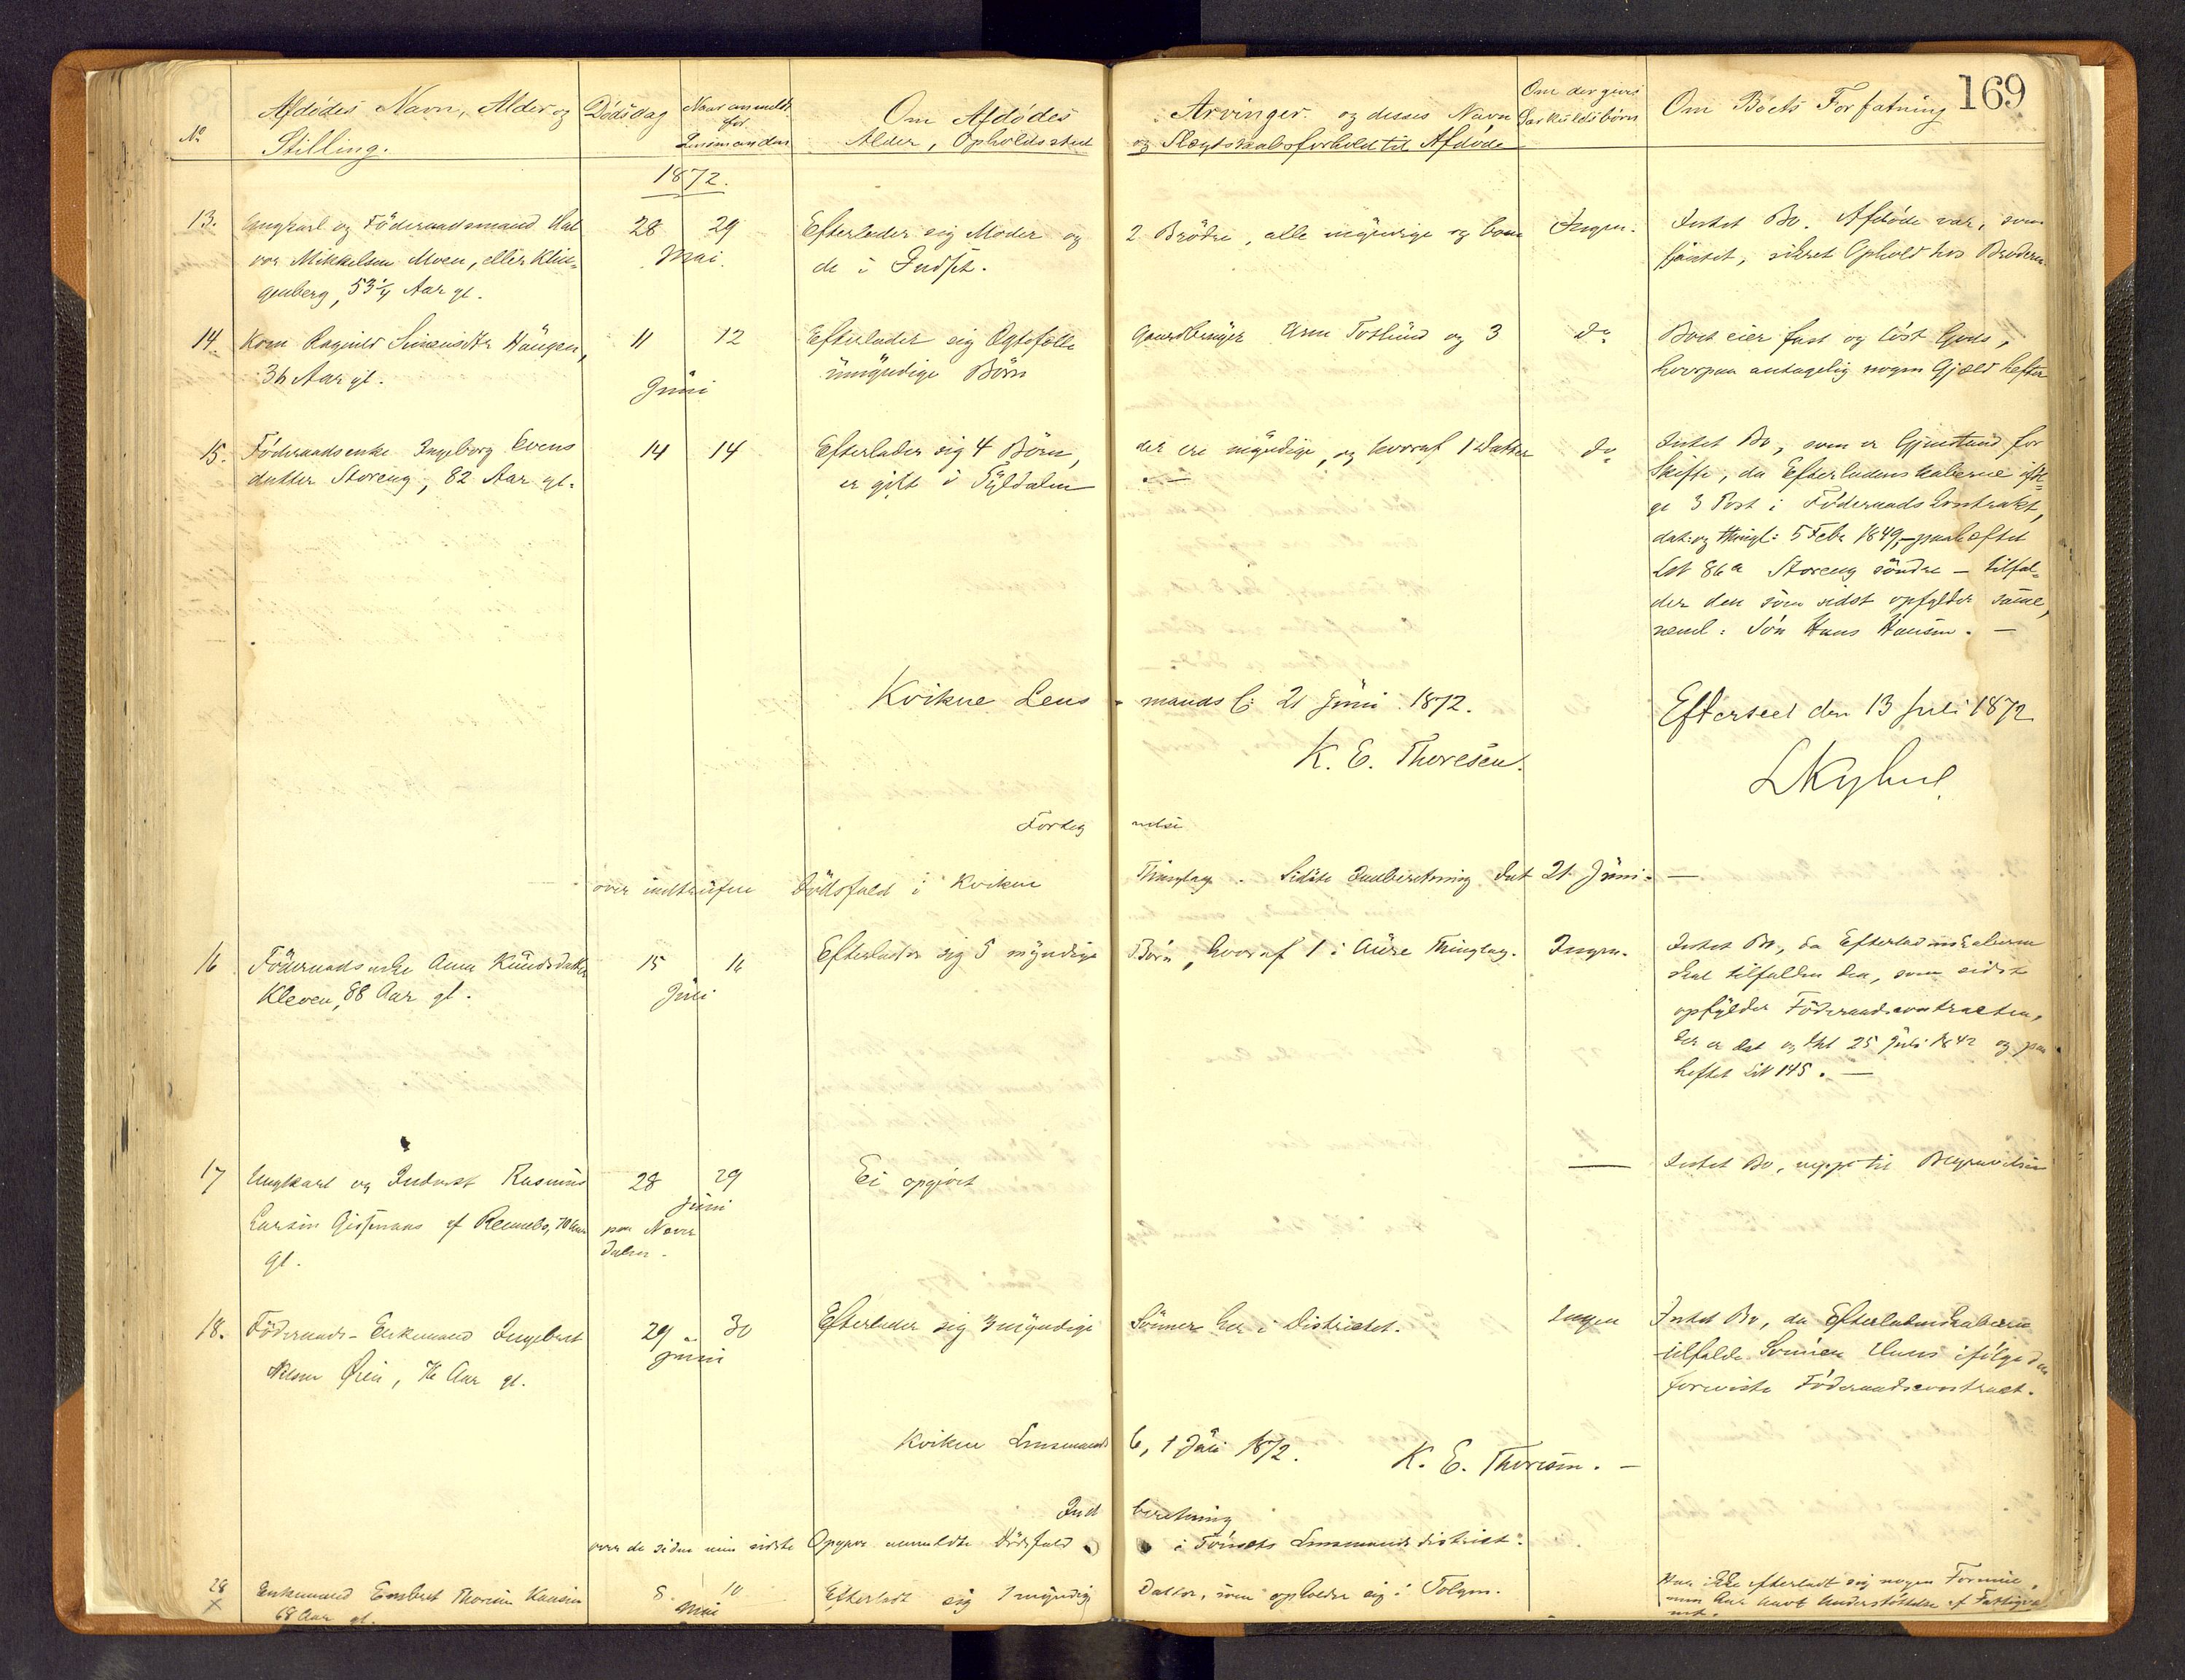 169
No
Afdödes Navn, Alder og
Stilling.
Dödsdag
Naar anmeldt
for
Lensmanden
Om Afdödes
Alder, Opholdssted
Arvinger og desses Navn
og Slægtskabsforhold til Afdöde
Om der gives
Særkuldsbörn
Om Boets Forfatning
1872.
13.
Ungkarl og Föderaadsmand Hal
vor Mikkelsen Moen, eller Klin-
genberg, 53 1/4 Aar gl.
28
29
Mai.
Efterlader sig Moder og
de i Indset.
2 Brödre, alle myndige og boen
Ingen.
Intet Bo. Afdöde var, som
sikret Ophold hos Broderen.
14.
Kone Ragnild Simensdtr Haugen,
36 Aar gl.
11
12
Juni
Efterlader sig Ægtefælle
umyndige Börn
Gaardbruger Arn Toslund og 3
do
Boet eier fast og löst Gods,
hvorpaa antagelig nogen Gjæld hefter
15.
Föderaadsenke Ingeborg Evens
datter Storeng, 82 Aar gl.
14
14
Efterlader sig 4 Börn,
er gift i Tyldalen
der ere myndige, og hvoraf 1 Datter
do
Intet Bo, som er Gjenstand for
Skifte, da Efterladenskaberne iföl-
ge 3 Post i Föderaads Contrakt,
dat: og thingl: 5 Febr 1849, - paaheftet
LN 86a Storeng söndre - tilfal-
der den som sidst opfylder samme,
neml: Sön Hans Hansen. -
Kvikne Lens-mands C: 21 Juni 1872.
K. E. Thoresen.
Efterseet den 13 Juli 1872
Forteg nelse
over indtrufne Dödsfald i Kvikne Thinglag. Sidste Indberetning dat 21 Juni. -
16
Föderaadsenke Anne Knudsdatter
Kleven, 88 Aar gl.
15
16
Juni
Efterlader sig 5 myndige
Börn, hvoraf 1 i Aure Thinglag.
Ingen.
Intet Bo, da Efterladenskaberne
skal tilfalde den, som sidst
opfylder Föderaadscontracten,
der er dat og thl 25 Juli 1842 og paa
heftet LN 145. -
17
Ungkarl og Inderst Rasmus
Larsen Gisnaas af Rennebo, 70 Aar
gl.
28
29
Juni
paa Naver
dalen.
Ei opgivet
Intet Bo, neppe til Begravelsen
18.
Föderaads-Enkemand Ingebret
Olsen Öien, 76 Aar gl.
29
30
Juni
Efterlader sig 3 myndige
Sönner her i Districtet.
Ingen
Intet Bo, da Efterladenskaberne
tilfalde Sönnen Hans ifölge den
foreviste Föderaadscontract.
Kvikne Lensmands C, 1 Juli 1872.
K. E. Thoresen. -
Ind beretning
over de siden min sidste Opgave anmeldte Dödsfald
i Tönsets Lensmands district:
28
x
Enkemand Embret Thoresen Hansen
68 Aar gl.
8
10
Mai
Efterladt sig 1 myndig
Datter, som opholder sig i Tolgen.
Har ikke efterladt sig nogen Formue,
men har havt Understöttelse af Fattigvæ
net.